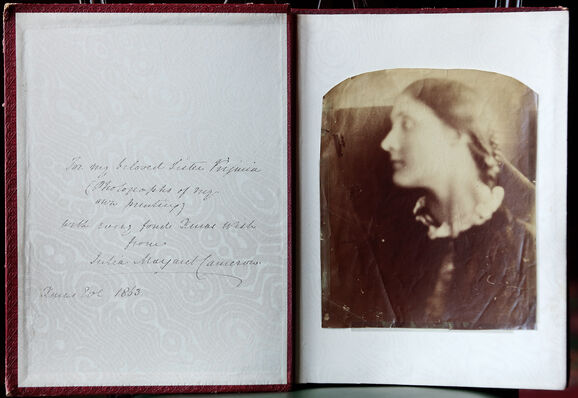 For my beloved Sister Virginia
(Photographs of my
own printing)
with every fond Xmas Wish
from
Julia Margaret Cameron
Xmas Eve 1863